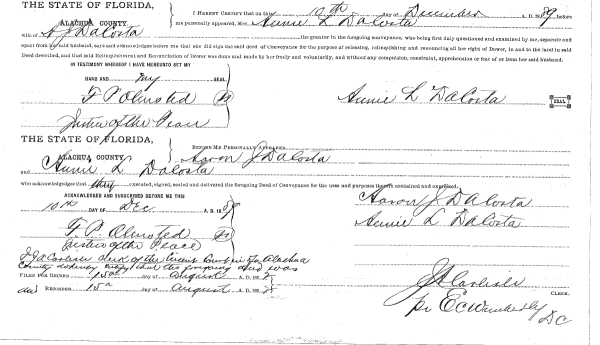 THE STATE OF FLORIDA,
ALACHUA COUNTY.
I HEREBY CERTIFY that on this 10th day of December A. D. 1889 before
me personally appeared, Mrs. Annie L DaCosta
wife of A J DaCosta the grantor in the foregoing conveyance, who being first duly questioned and examined by me, separate and
apart from her said husband, says and acknowledges before me that she did sign the said deed of Conveyance for the purpose of releasing, relinquishing and renouncing all her right of Dower, in and to the land in said
Deed described, and that said Relinquishment and Renunciation of Dower was done and made by her freely and voluntarily, and without any compulsion, constraint, apprehension or fear of or from her said husband.
IN TESTIMONY WHEREOF I HAVE HEREUNTO SET MY
HAND AND my SEAL
F P Olmsted
Annie L DaCosta SEAL
Justice of the Peace
THE STATE OF FLORIDA,
ALACHUA COUNTY.
BEFORE ME PERSONALLY APPEARED
Aaron J DaCosta
and Annie L DaCosta
who acknowledged that they executed, signed, sealed and delivered the foregoing Deed of Conveyance for the uses and purposes therein contained and expressed.
ACKNOWLEDGED AND SUBSCRIBED BEFORE ME THIS
10th DAY OF Dec A. D. 1889
Aaron J DaCosta
Annie L DaCosta
F. P. Olmsted
Justice of the Peace
I J A Carlisle clerk of the Circuit Court in & for Alachua
County do hereby certify that the foregoing deed was
FILED FOR RECORD 15 day of August A. D. 189
and RECORDED 15 day of August A. D. 189
J A Carlisle CLERK.
pr E C Wimberly
DC